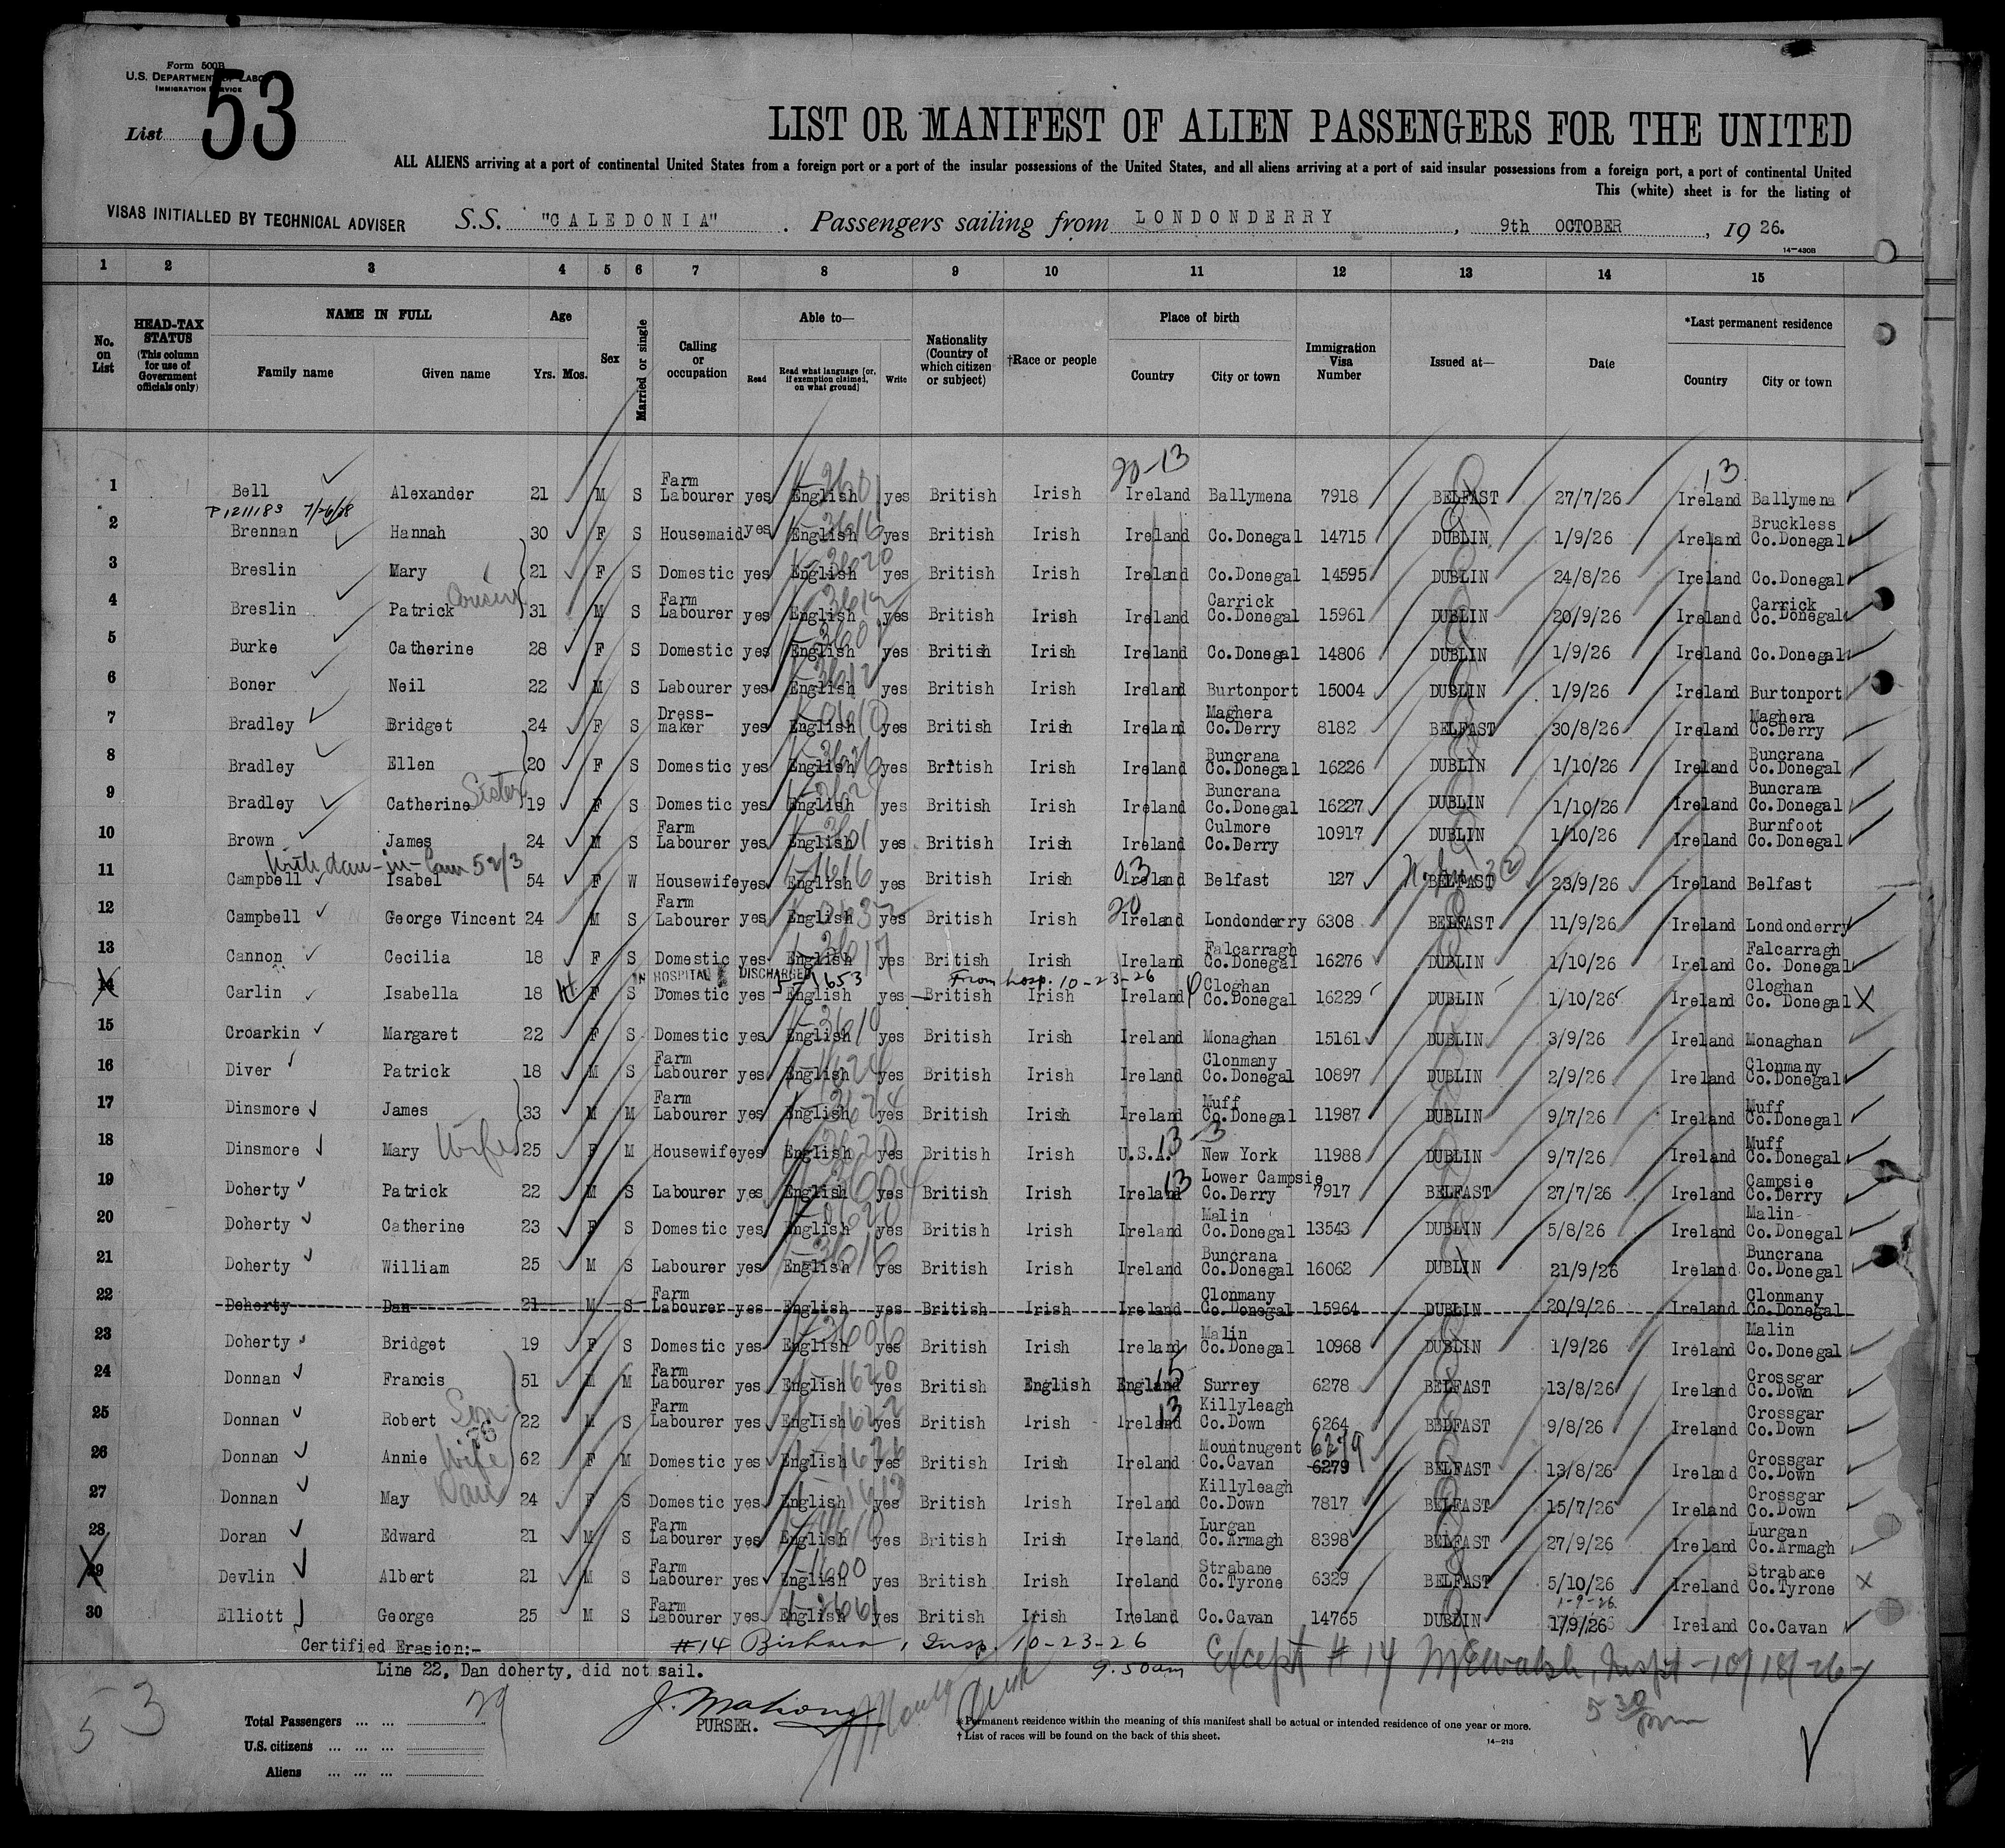 Form 500B
U.S. DEPARTMENT OF LABOR
IMMIGRATION SERVICE
List 53
LIST OR MANIFEST OF ALIEN PASSENGERS FOR THE UNITED
ALL ALIENS arriving at a port of continental United States from a foreign port or a port of the insular possessions of the United States, and all aliens arriving at a port of said insular possessions from a foreign port, a port of continental United
This (white) sheet is for the listing of
VISAS INITIALLED BY TECHNICAL ADVISER S.S. "CALEDONIA" . Passengers sailing from LONDONDERRY , 9th OCTOBER , 19 26.
14-430B
1 2 3 4 5 6 7 8 9 10 11 12 13 14 15
No. on List
HEAD-TAX STATUS (This column for use of Government officials only)
NAME IN FULL
Family name Given name
Age
Yrs. Mos.
Sex
Married or single
Calling or occupation
Able to—
Read
Read what language [or, if exemption claimed, on what ground]
Write
Nationality (Country of which citizen or subject)
†Race or people
Place of birth
Country City or town
Immigration Visa Number
Issued at—
Date
*Last permanent residence
Country City or town
20-13 13
1 Bell Alexander 21 M S Farm Labourer yes English yes British Irish Ireland Ballymena 7918 BELFAST 27/7/26 Ireland Ballymena
P 1211183 7/26/38
2 Brennan Hannah 30 F S Housemaid yes English yes British Irish Ireland Co.Donegal 14715 DUBLIN 1/9/26 Ireland Bruckless Co.Donegal
3 Breslin Mary 21 F S Domestic yes English yes British Irish Ireland Co.Donegal 14595 DUBLIN 24/8/26 Ireland Co.Donegal
Cousin
4 Breslin Patrick 31 M S Farm Labourer yes English yes British Irish Ireland Carrick Co.Donegal 15961 DUBLIN 20/9/26 Ireland Carrick Co.Donegal
5 Burke Catherine 28 F S Domestic yes English yes British Irish Ireland Co.Donegal 14806 DUBLIN 1/9/26 Ireland Co.Donegal
6 Boner Neil 22 M S Labourer yes English yes British Irish Ireland Burtonport 15004 DUBLIN 1/9/26 Ireland Burtonport
7 Bradley Bridget 24 F S Dress-maker yes English yes British Irish Ireland Maghera Co.Derry 8182 BELFAST 30/8/26 Ireland Maghera Co.Derry
8 Bradley Ellen 20 F S Domestic yes English yes British Irish Ireland Buncrana Co.Donegal 16226 DUBLIN 1/10/26 Ireland Buncrana Co.Donegal
9 Bradley Catherine Sister 19 F S Domestic yes English yes British Irish Ireland Buncrana Co.Donegal 16227 DUBLIN 1/10/26 Ireland Buncrana Co.Donegal
10 Brown James 24 M S Farm Labourer yes English yes British Irish Ireland Culmore Co.Derry 10917 DUBLIN 1/10/26 Ireland Burnfoot Co.Donegal
With dau-in-law 52/3
11 Campbell Isabel 54 F W Housewife yes English yes British Irish Ireland Belfast 127 BELFAST 23/9/26 Ireland Belfast
12 Campbell George Vincent 24 M S Farm Labourer yes English yes British Irish Ireland Londonderry 6308 BELFAST 11/9/26 Ireland Londonderry
13 Cannon Cecilia 18 F S Domestic yes English yes British Irish Ireland Falcarragh Co.Donegal 16276 DUBLIN 1/10/26 Ireland Falcarragh Co. Donegal
IN HOSPITAL DISCHARGED From hosp. 10-23-26
14 Carlin Isabella 18 F S Domestic yes English yes British Irish Ireland Cloghan Co.Donegal 16229 DUBLIN 1/10/26 Ireland Cloghan Co. Donegal X
15 Croarkin Margaret 22 F S Domestic yes English yes British Irish Ireland Monaghan 15161 DUBLIN 3/9/26 Ireland Monaghan
16 Diver Patrick 18 M S Farm Labourer yes English yes British Irish Ireland Clonmany Co.Donegal 10897 DUBLIN 2/9/26 Ireland Clonmany Co.Donegal
17 Dinsmore James 33 M M Farm Labourer yes English yes British Irish Ireland Muff Co.Donegal 11987 DUBLIN 9/7/26 Ireland Muff Co.Donegal
18 Dinsmore Mary Wife 25 F M Housewife yes English yes British Irish U.S.A. New York 11988 DUBLIN 9/7/26 Ireland Muff Co.Donegal
19 Doherty Patrick 22 M S Labourer yes English yes British Irish Ireland Lower Campsie Co.Derry 7917 BELFAST 27/7/26 Ireland Campsie Co.Derry
20 Doherty Catherine 23 F S Domestic yes English yes British Irish Ireland Malin Co.Donegal 13543 DUBLIN 5/8/26 Ireland Malin Co.Donegal
21 Doherty William 25 M S Labourer yes English yes British Irish Ireland Buncrana Co.Donegal 16062 DUBLIN 21/9/26 Ireland Buncrana Co.Donegal
22 Doherty Dan 21 M S Farm Labourer yes English yes British Irish Ireland Clonmany Co.Donegal 15964 DUBLIN 20/9/26 Ireland Clonmany Co.Donegal
23 Doherty Bridget 19 F S Domestic yes English yes British Irish Ireland Malin Co.Donegal 10968 DUBLIN 1/9/26 Ireland Malin Co.Donegal
24 Donnan Francis 51 M M Farm Labourer yes English yes British English England Surrey 6278 BELFAST 13/8/26 Ireland Crossgar Co.Down
25 Donnan Robert Son 22 M S Farm Labourer yes English yes British Irish Ireland Killyleagh Co.Down 6264 BELFAST 9/8/26 Ireland Crossgar Co.Down
26 Donnan Annie Wife 62 F M Domestic yes English yes British Irish Ireland Mountnugent Co.Cavan 6279 6279 BELFAST 13/8/26 Ireland Crossgar Co.Down
27 Donnan May Dau 24 F S Domestic yes English yes British Irish Ireland Killyleagh Co.Down 7817 BELFAST 15/7/26 Ireland Crossgar Co.Down
28 Doran Edward 21 M S Farm Labourer yes English yes British Irish Ireland Lurgan Co.Armagh 8398 BELFAST 27/9/26 Ireland Lurgan Co.Armagh
29 Devlin Albert 21 M S Farm Labourer yes English yes British Irish Ireland Strabane Co.Tyrone 6329 BELFAST 5/10/26 Ireland Strabane Co.Tyrone X
1-9-26
30 Elliott George 25 M S Farm Labourer yes English yes British Irish Ireland Co.Cavan 14765 DUBLIN 1/9/26 Ireland Co.Cavan
Certified Erasion:- #14 Bishara, Insp. 10-23-26
Line 22, Dan doherty, did not sail. 9.50am Except #14 Inspt-10/18/26
5 30 pm
53
Total Passengers ... ... 29
U.S. citizens ... ... ...
Aliens ... ... ...
J. Mahony
PURSER.
*Permanent residence within the meaning of this manifest shall be actual or intended residence of one year or more.
† List of races will be found on the back of this sheet.
14-213